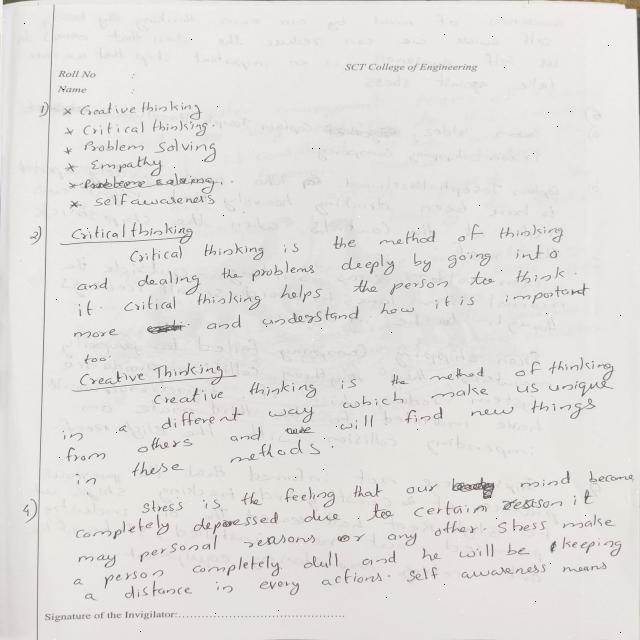 SCT College of Engineering
Roll No :
Name :
1) * Creative thinking
* Critical thinking.
* Problem solving
* Empathy
* Problem solving.
* self awareness
2) Critical thinking
Critical thinking is the method of thinking
and dealing the problems deeply by going into
it. Critical thinking helps the person to think
more and understand how it is important
too.
Creative Thinking
Creative thinking is the method of thinking
in a different way which make us unique
from others and will find new things
in these methods.
4) Stress is the feeling that our mind become
completely depressed due to certain reason it
may personal reasons or any other. Stress make
a person completely dull and he will be keeping
a distance in every actions. Self awareness means
Signature of the Invigilator:..........................................